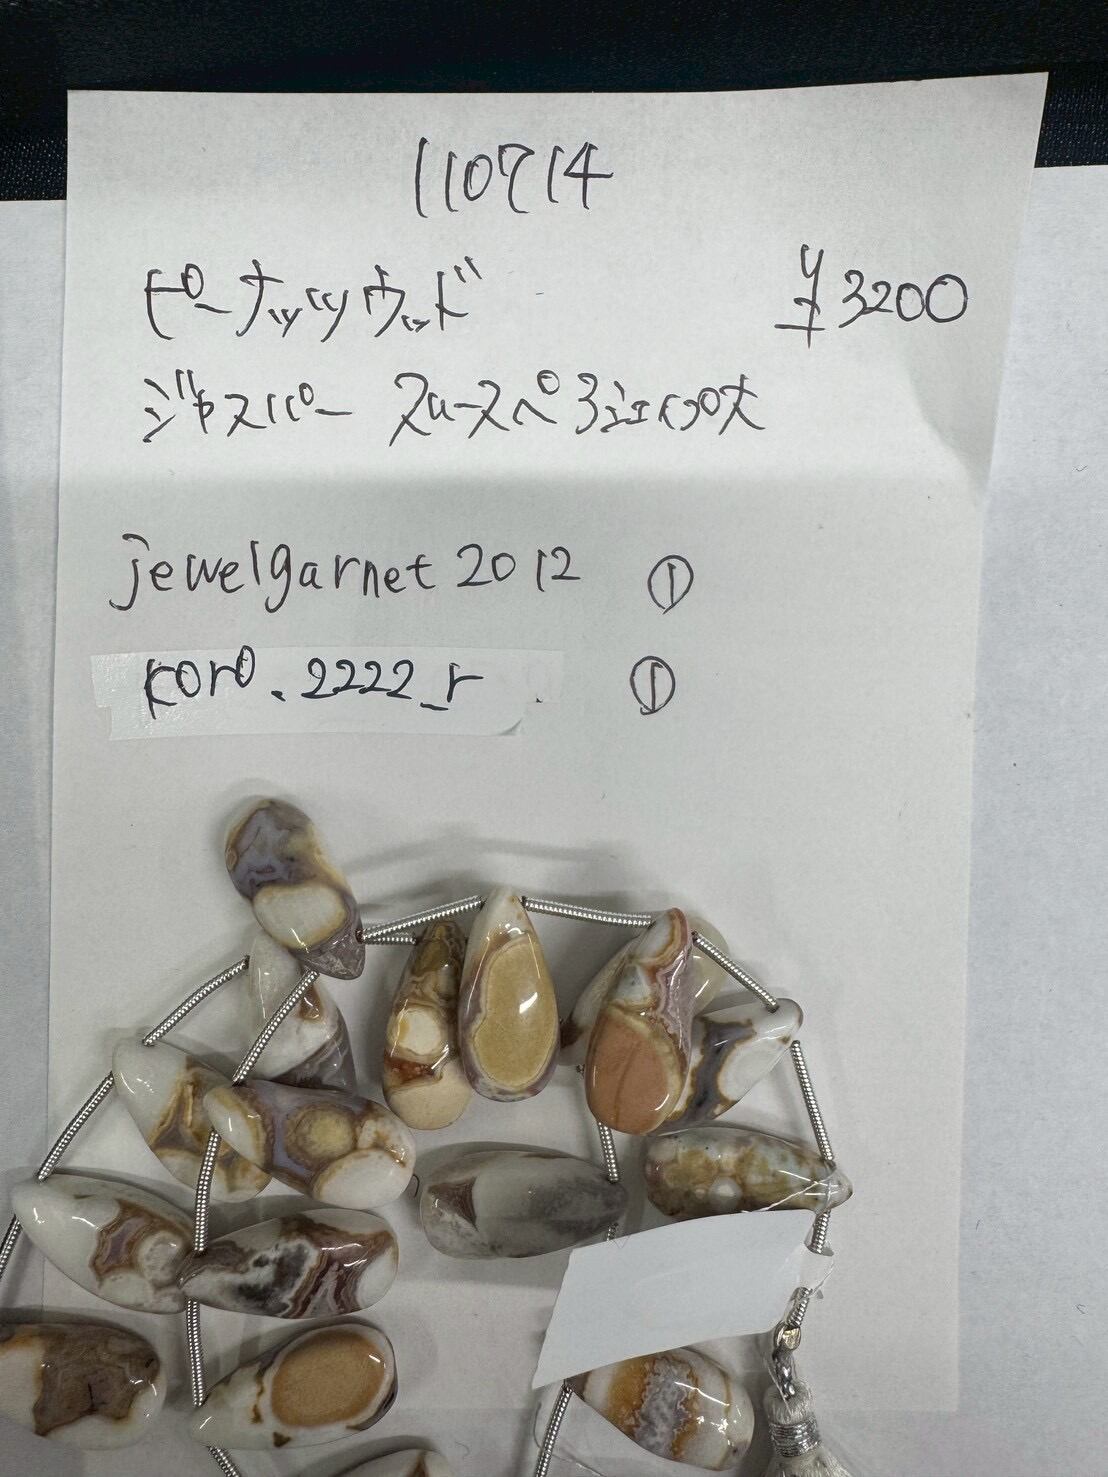 110714
ピーナッツウッド ¥3200
ジャスパー スムースペ
jewelgarnet 2012 ①
koro.2222_r ①